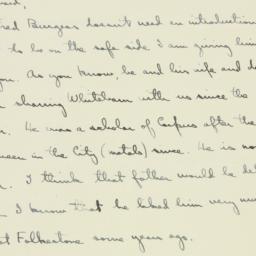 red Burgess doesn't need an introduction
to be on the safe side I am giving him
you. As you know, he and his wife and d
sharing Whiteham with us since the
. He was a scholar of Corpus after the
been in the City (metals) since. He is no
. I think that father would be de
I know that he liked him very mu
at Folkestone some years ago.